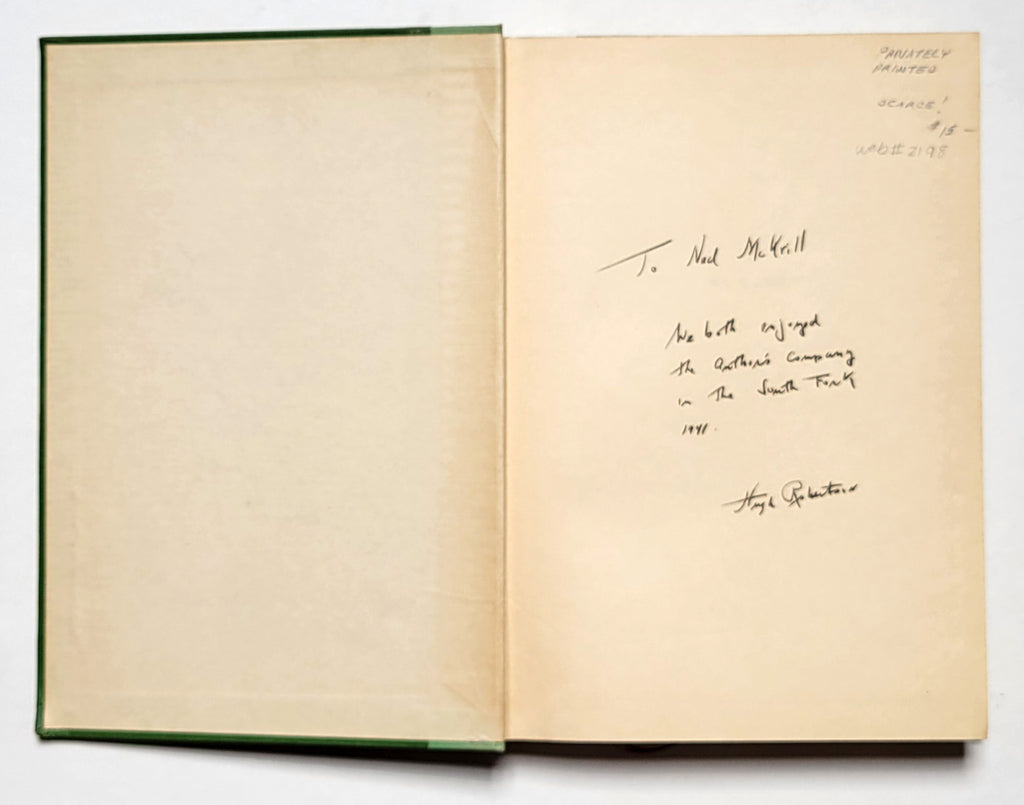 PRIVATELY
PRINTED
SCARCE!
$15 —
web# 2198
To Ned McKrill
We both enjoyed
the author's company
in the South Fork
1941.
Hugh Robertson